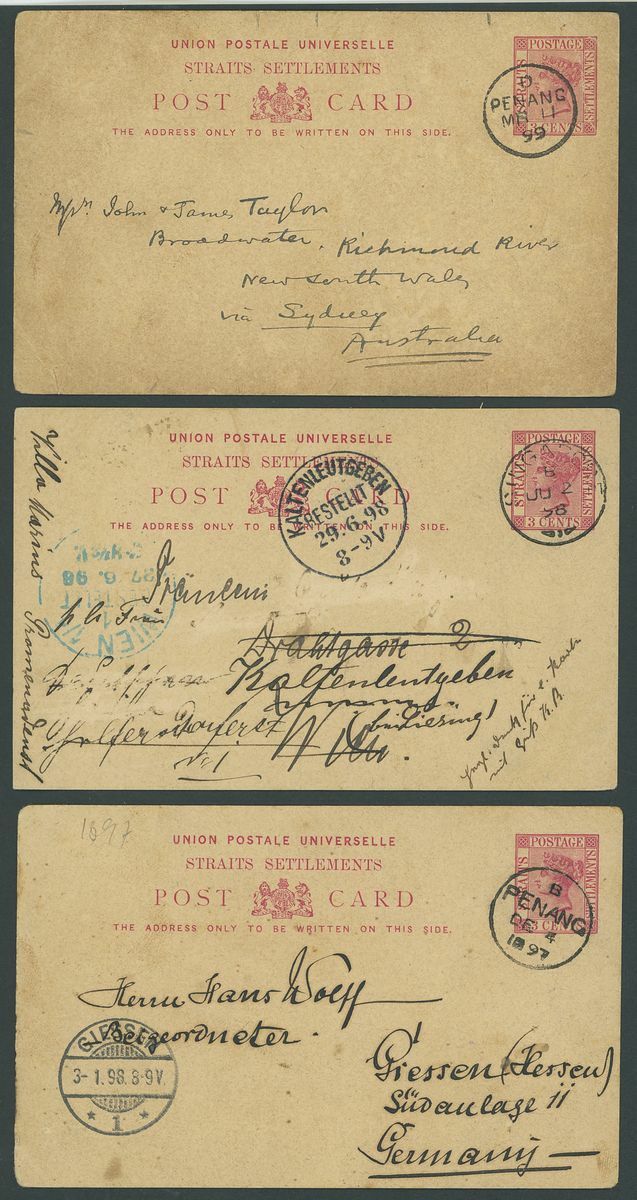 UNION POSTALE UNIVERSELLE
STRAITS SETTLEMENTS
POST CARD
THE ADDRESS ONLY TO BE WRITTEN ON THIS SIDE.
STRAITS POSTAGE SETTLEMENTS
3 CENTS
D
PENANG
MR 11
99
John & James Taylor
Broadwater, Richmond River
New South Wales
via Sydney
Australia
UNION POSTALE UNIVERSELLE
STRAITS SETTLEMENTS
POST CARD
THE ADDRESS ONLY TO BE WRITTEN ON THIS SIDE.
STRAITS POSTAGE
3 CENTS
JU 2
98
KALTENLEUTGEBEN
BESTELLT
29.6.98
8-9V
WIEN
BESTELLT
27.6.98
Villa Marins - Promenadenst
Fräulein
Drahtgasse 2
Kaltenleutgeben
Wien
1897
UNION POSTALE UNIVERSELLE
STRAITS SETTLEMENTS
POST CARD
THE ADDRESS ONLY TO BE WRITTEN ON THIS SIDE.
STRAITS POSTAGE SETTLEMENTS
3 CENTS
B
PENANG
DE 4
1897
Herrn Hans Wolff
Beigeordneter.
GIESSEN
3-1.98.8-9V.
* 1 *
Giessen (Hessen)
Südanlage 11
Germany